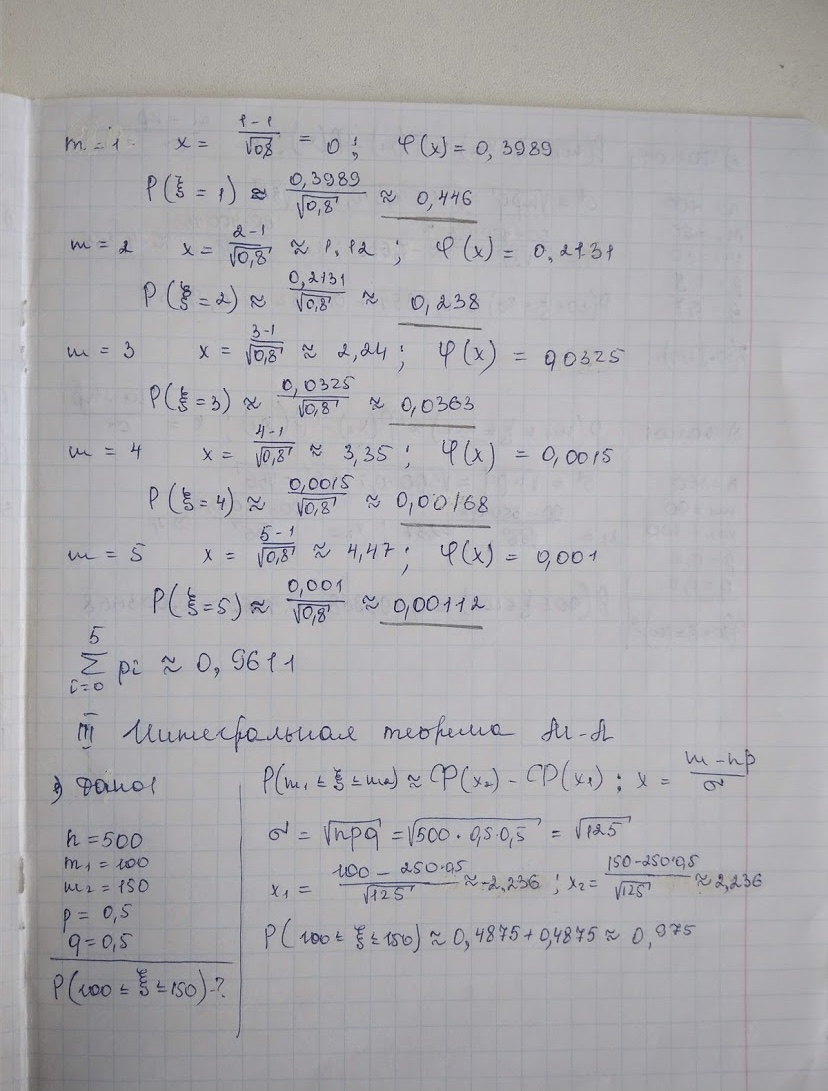 m = 1 x = (1-1)/√0,8 = 0 ; φ(x) = 0,3989
P(ξ = 1) ≈ 0,3989/√0,8 ≈ 0,446
m = 2 x = (2-1)/√0,8 ≈ 1,12 ; φ(x) = 0,2131
P(ξ = 2) ≈ 0,2131/√0,8 ≈ 0,238
m = 3 x = (3-1)/√0,8 ≈ 2,24 ; φ(x) = 0,0325
P(ξ = 3) ≈ 0,0325/√0,8 ≈ 0,0363
m = 4 x = (4-1)/√0,8 ≈ 3,35 ; φ(x) = 0,0015
P(ξ = 4) ≈ 0,0015/√0,8 ≈ 0,00168
m = 5 x = (5-1)/√0,8 ≈ 4,47 ; φ(x) = 0,001
P(ξ = 5) ≈ 0,001/√0,8 ≈ 0,00112
5 ∑ i=0 pi ≈ 0,9611
III Интегральная теорема М-Л
Дано:
n = 500
m1 = 100
m2 = 150
p = 0,5
q = 0,5
P(100 ≤ ξ ≤ 150) - ?
P(m1 ≤ ξ ≤ m2) ≈ Ф(x2) - Ф(x1) ; x = (m - np)/σ
σ = √npq = √500 · 0,5 · 0,5 = √125
x1 = (100 - 250·0,5)/√125 ≈ -2,236 ; x2 = (150 - 250·0,5)/√125 ≈ 2,236
P(100 ≤ ξ ≤ 150) ≈ 0,4875 + 0,4875 ≈ 0,975